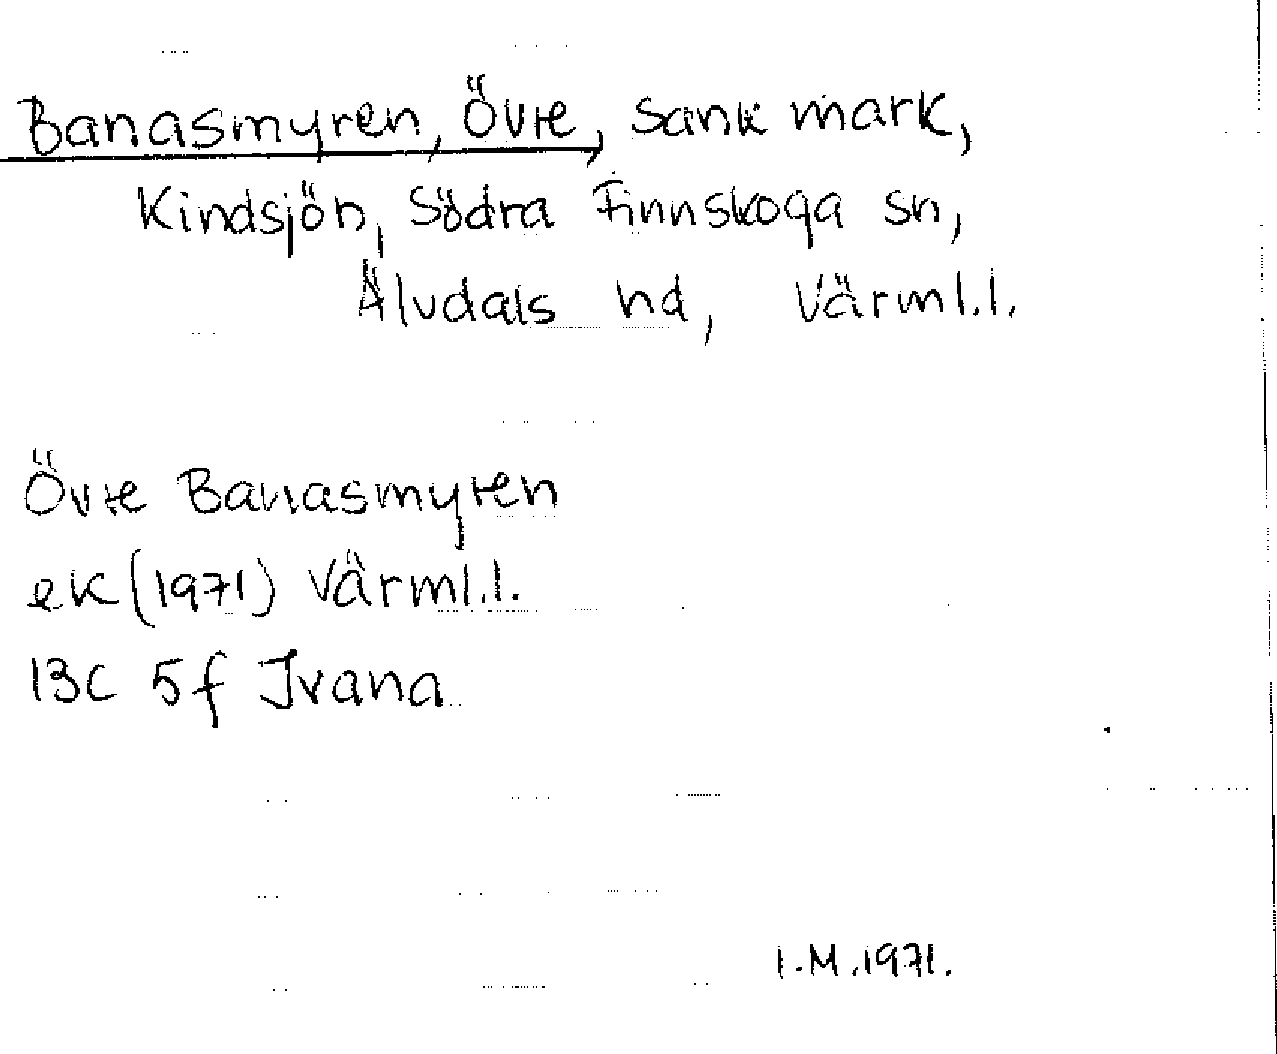 Banasmyren, Övre, sank mark,
Kindsjön, Södra Finnskoga sn,
Älvdals hd, Värml.l.
Övre Banasmyren
ek (1971) Värml.l.
13C 5f Ivana
I.M.1971.